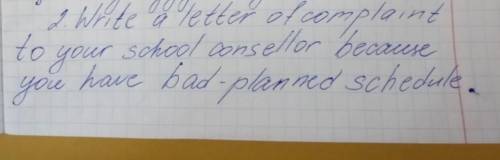 2. Write a letter of complaint
to your school consellor because
you have bad-planned schedule.